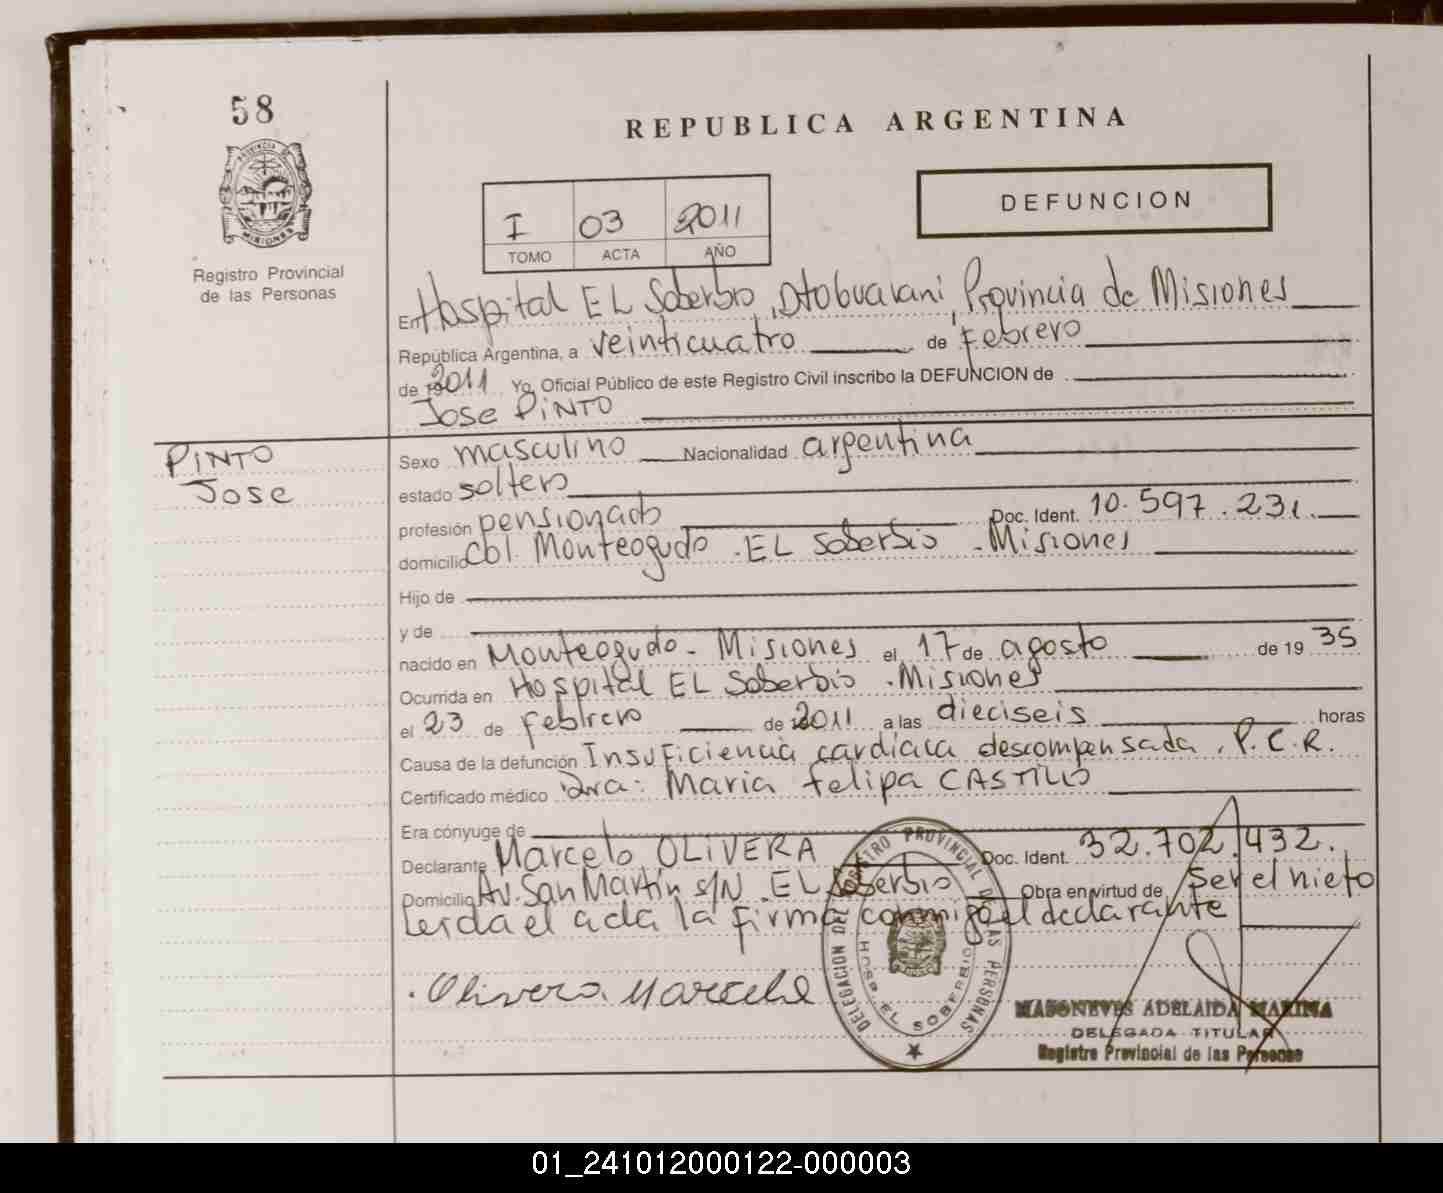 58
PROVINCIA DE
MISIONES
Registro Provincial
de las Personas
REPUBLICA ARGENTINA
DEFUNCION
I 03 2011
TOMO ACTA AÑO
En Hospital EL Soberbio, Dto Guarani, Provincia de Misiones
República Argentina, a veinticuatro de Febrero
de 2011 Yo, Oficial Público de este Registro Civil inscribo la DEFUNCION de
Jose PINTO
PINTO
Jose
Sexo masculino Nacionalidad argentina
estado soltero
profesión pensionado Doc. Ident. 10.597.231.
domicilio Col. Monteogudo. EL Soberbio. Misiones
Hijo de
y de
nacido en Monteogudo - Misiones el 17 de agosto de 19 35
Ocurrida en Hospital EL Soberbio. Misiones
el 23 de Febrero de 2011 a las dieciseis horas
Causa de la defunción Insuficiencia cardiaca descompensada, P.C.R.
Certificado médico Dra: Maria Felipa CASTILLO
Era cónyuge de
Declarante Marcelo OLIVERA Doc. Ident. 32.702.432.
Domicilio Av. San Martín s/N. EL Soberbio Obra en virtud de ser el nieto
Leida el acta la firma conmigo el declarante
Olivera Marcelo
DELEGACION DEL REGISTRO PROVINCIAL DE LAS PERSONAS
HOSP. EL SOBERBIO
ADELAIDA MARINA
DELEGADA TITULAR
Registro Provincial de las Personas
01_241012000122-000003